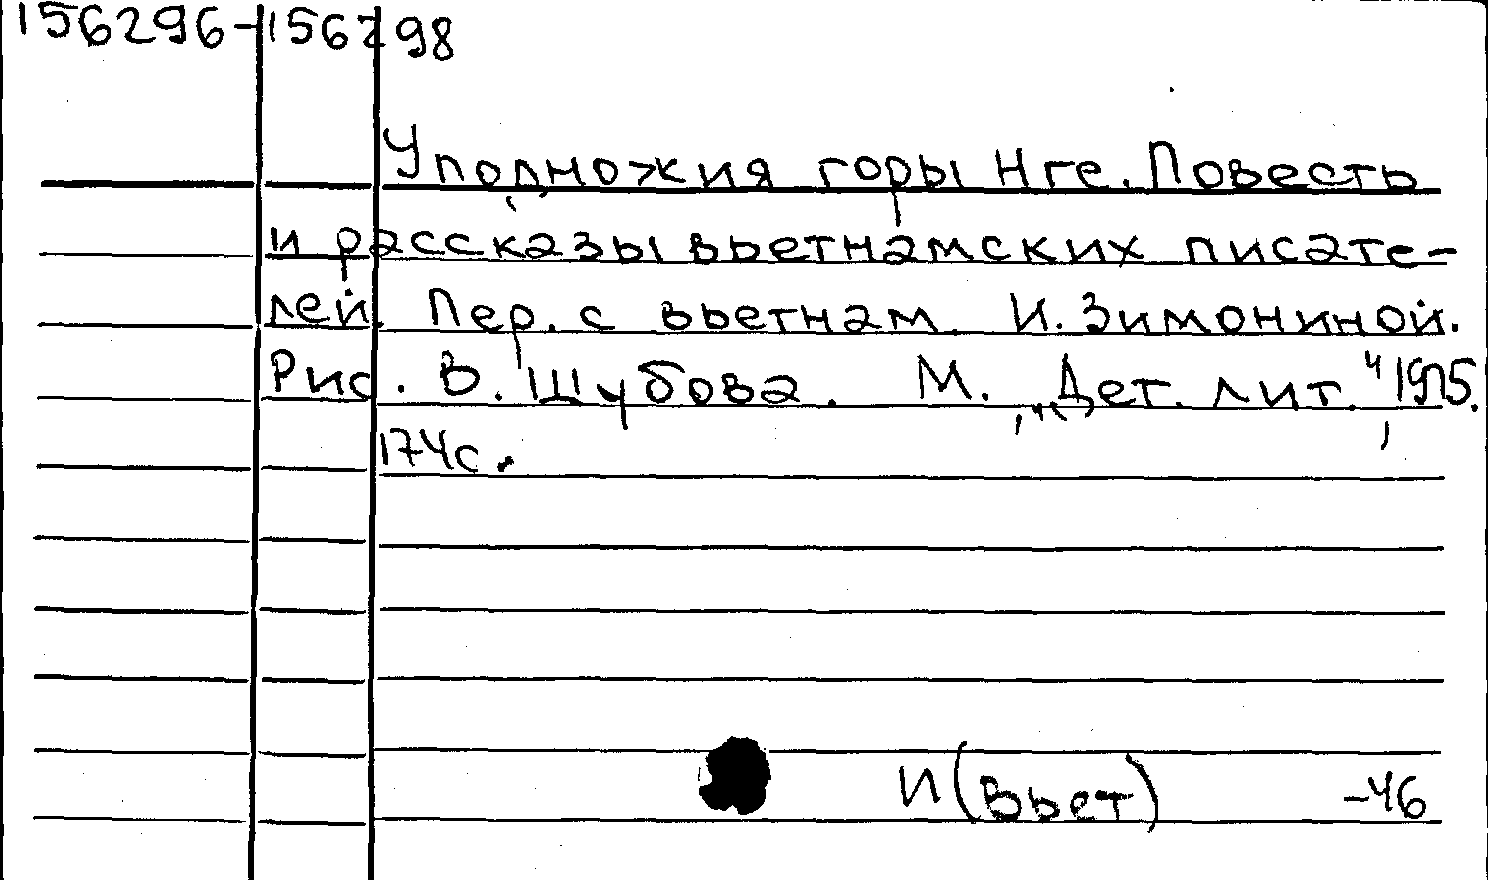 156296-156298
У подножия горы Нге. Повесть
и рассказы вьетнамских писате-
лей. Пер. с вьетнам. И. Зимониной.
Рис. В. Шубова. М., „Дет. лит.", 1975.
174с.
И(Вьет) -46